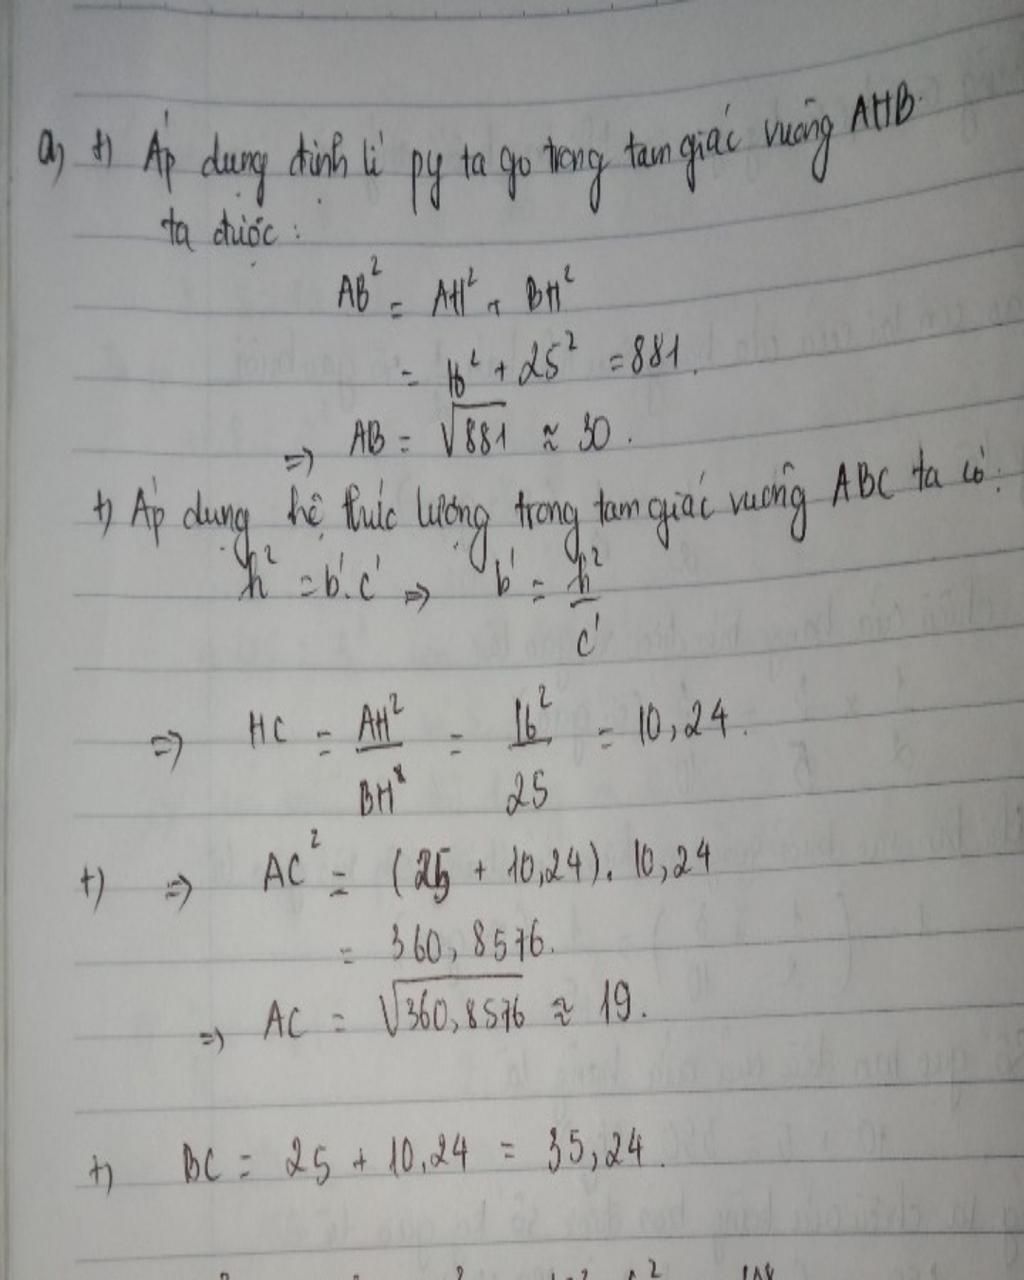 a) +) Áp dụng định lí py ta go trong tam giác vuông AHB
ta được:
AB² = AH² + BH²
= 16² + 25² = 881.
=> AB = √881 ≈ 30.
+) Áp dụng hệ thức lượng trong tam giác vuông ABC ta có:
h² = b'.c' => b' = h²/c'
=> HC = AH²/BH = 16²/25 = 10,24.
+) => AC² = (25 + 10,24). 10,24
= 360,8576.
=> AC = √360,8576 ≈ 19.
+) BC = 25 + 10,24 = 35,24.